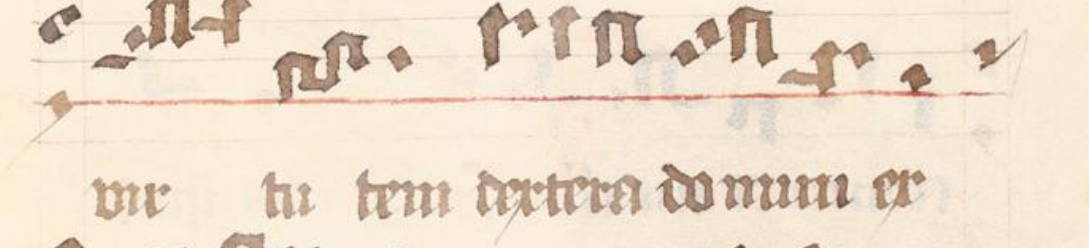 vir tu tem dextera domini ex